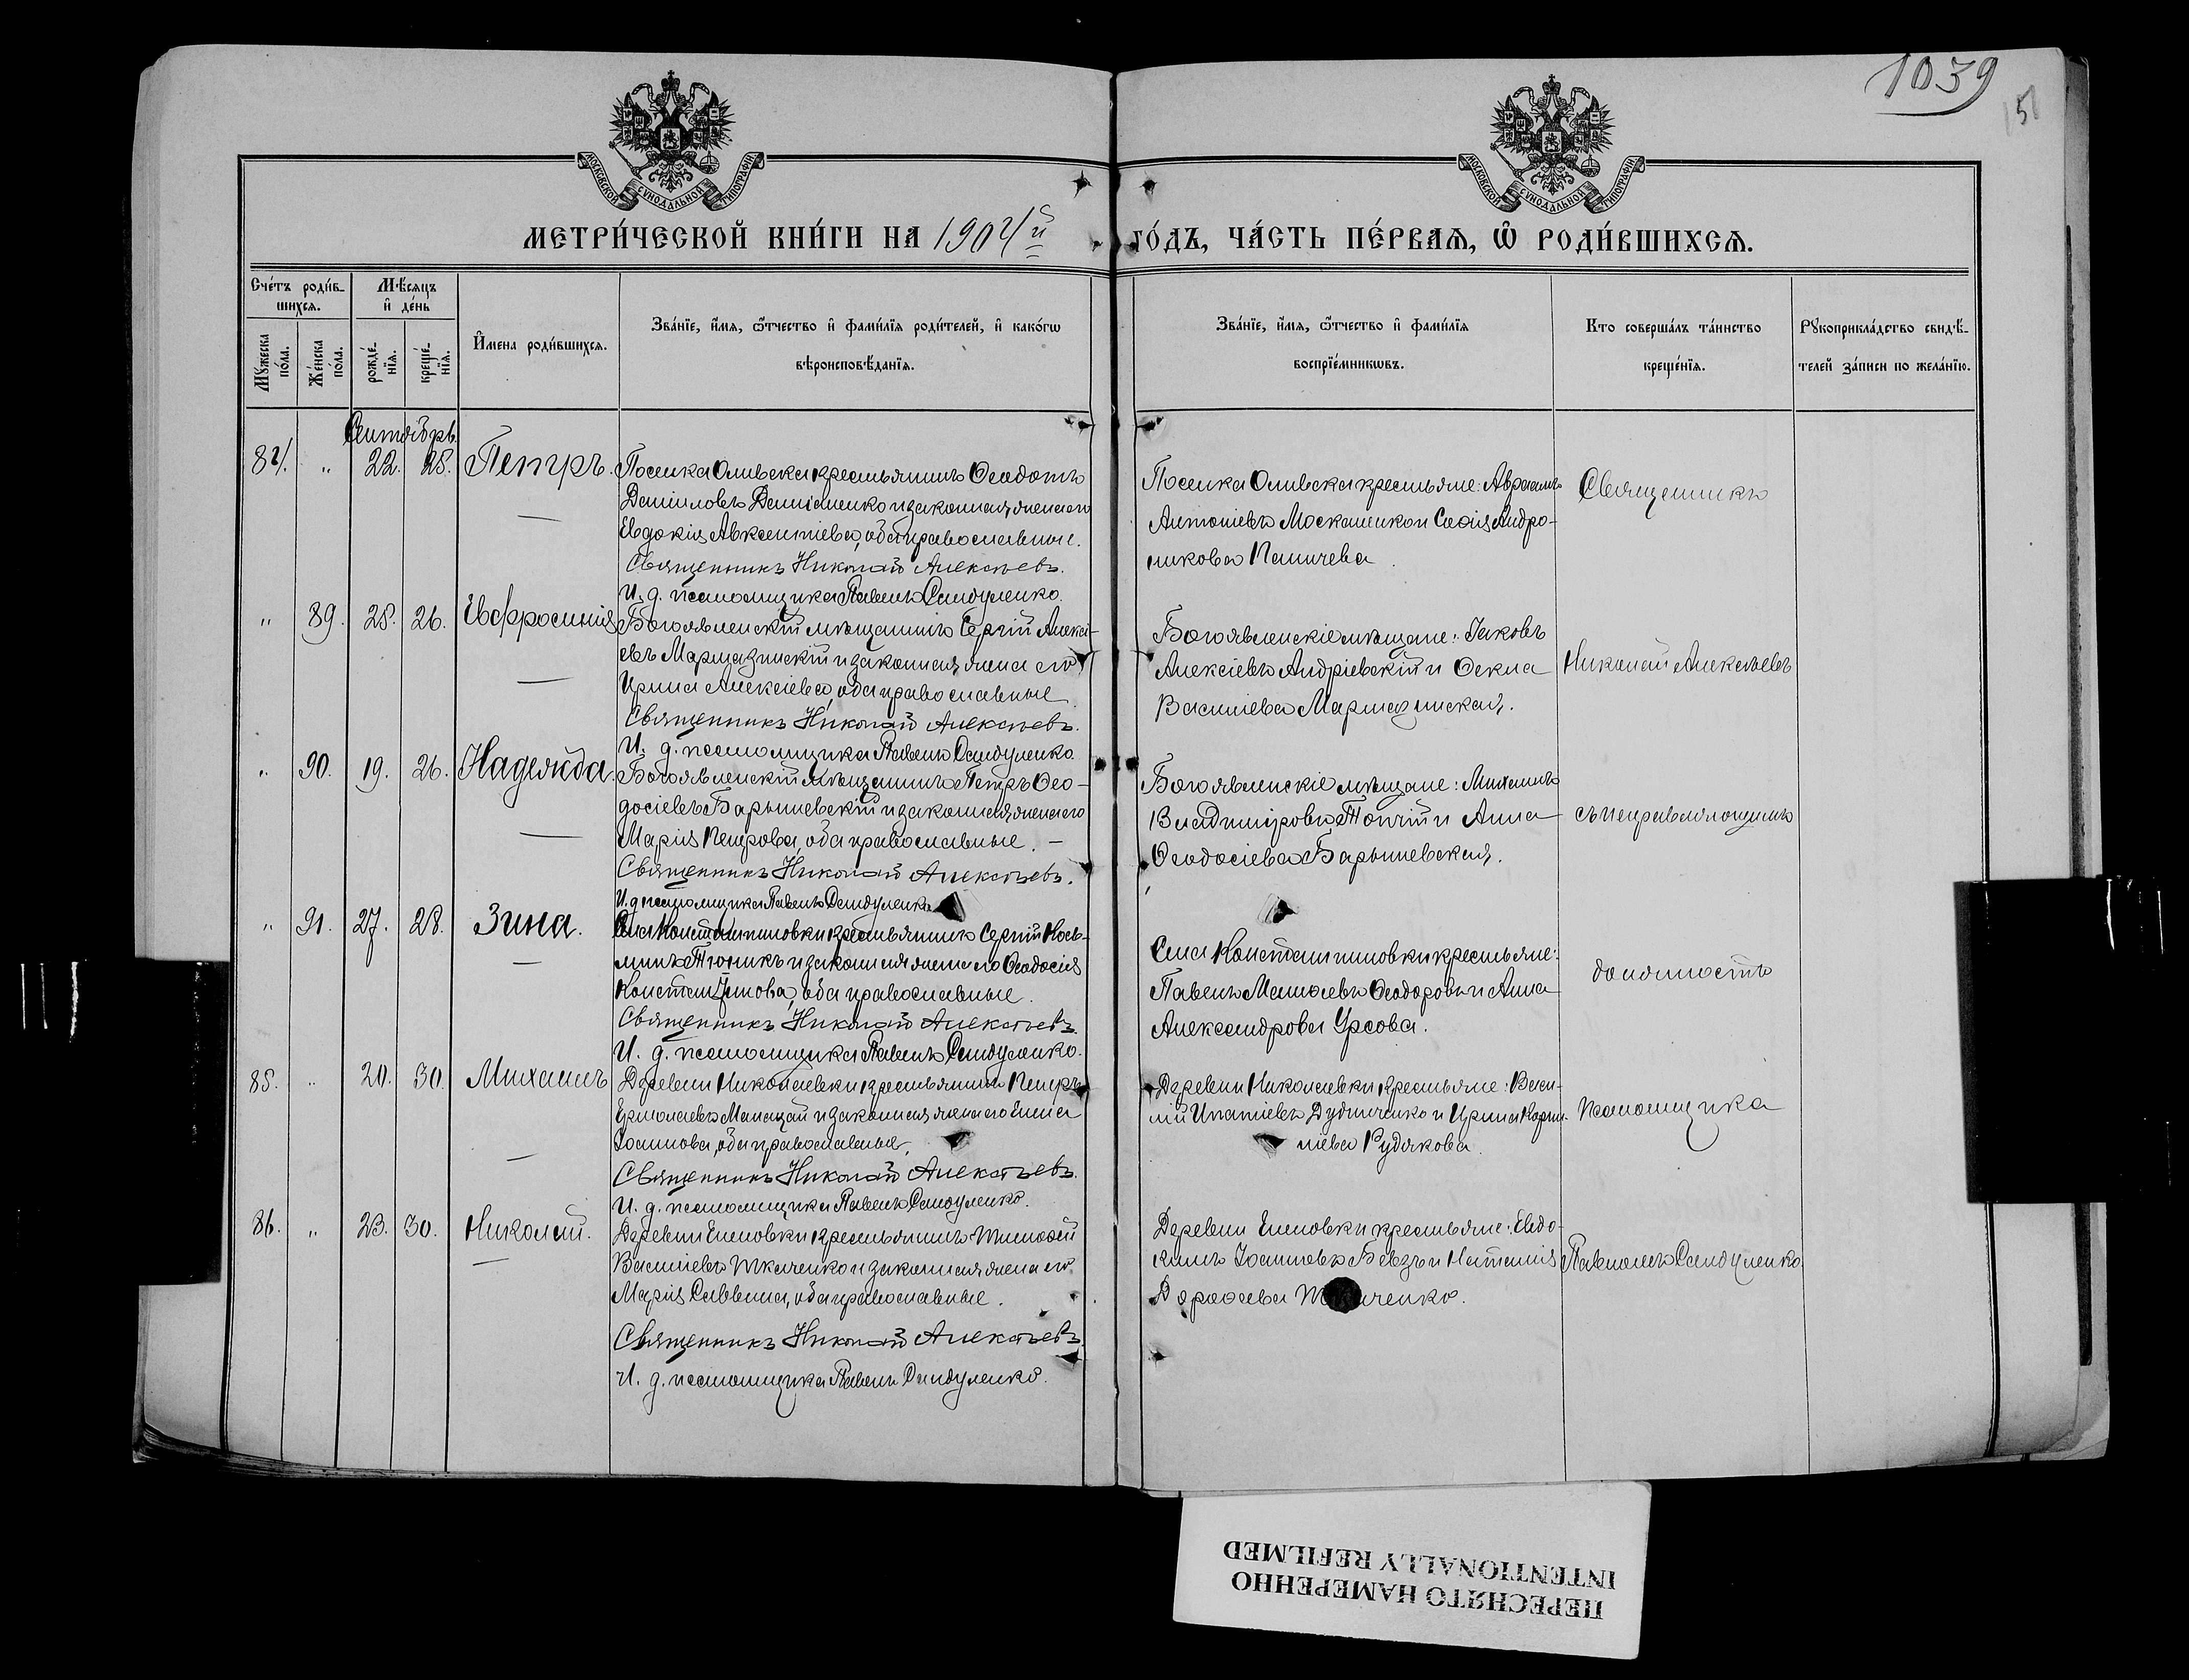 1039
151
МОСКОВСКОЙ СѴНОДАЛЬНОЙ ТИПОГРАФІИ
МОСКОВСКОЙ СѴНОДАЛЬНОЙ ТИПОГРАФІИ
МЕТРИ́ЧЕСКОЙ КНИ́ГИ НА 1904й го́дъ, ЧА́СТЬ ПЕ́РВАѦ, Ѿ РОДИ́ВШИХСѦ.
Сче́тъ роди́в-
шихсѧ.
Мꙋ́жеска по́ла.
Же́нска по́ла.
Мѣ́сѧцъ и де́нь
рожде́-нїѧ.
креще́-нїѧ.
И҆мена роди́вшихсѧ.
Зва́нїе, и҆́мѧ, ѻ҆́тчество и҆ фами́лїѧ роди́телей, и҆ како́гѡ
вѣроисповѣ́данїѧ.
Зва́нїе, и҆́мѧ, ѻ҆́тчество и҆ фами́лїѧ
воспрїе́мникѡвъ.
Кто соверша́лъ та́инство
креще́нїѧ.
Рꙋкоприкла́дство свидѣ́-
телей за́писи по жела́нїю.
Сентябрь
84. " 22. 25. Петръ.
Поселка Ольвска крестьянинъ Ѳеодотъ
Даніиловъ Демьяненко и законная жена его
Евдокія Авксентіева, оба православные.
Священникъ Николай Алексѣевъ.
И. д. псаломщика Павелъ Сандуленко.
Поселка Ольвска крестьяне: Авраамъ
Антоніевъ Москаленко и Софія Андро-
никова Паничева
" 89. 25. 26. Евфросинія
Богоявленскій мѣщанинъ Сергій Алексі-
евъ Маршазинскій и законная жена его
Ирина Алексіева, оба православные.
Священникъ Николай Алексѣевъ.
И. д. псаломщика Павелъ Сандуленко.
Богоявленскіе мѣщане: Іаковъ
Алексіевъ Андріевскій и Ѳекла
Василіева Маршазинская.
" 90. 19. 26. Надежда.
Богоявленскій мѣщанинъ Петръ Ѳео-
досіевъ Барышевскій и законная жена его
Марія Петрова, оба православные. —
Священникъ Николай Алексѣевъ.
И. д. псаломщика Павелъ Сандуленко
Богоявленскіе мѣщане: Михаилъ
Владиміровъ Топчій и Анна
Ѳеодосіева Барышевская.
" 91. 27. 28. Зина.
Села Константиновки крестьянинъ Сергій Кось-
минъ Тюникъ и законная жена его Ѳеодосія
Константинова, оба православные.
Священникъ Николай Алексѣевъ.
И. д. псаломщика Павелъ Сандуленко.
Села Константиновки крестьяне:
Павелъ Ѳеодоровъ и Анна
Александрова Урсова.
85. " 20. 30. Михаилъ
Деревни Николаевки крестьянинъ Петръ
Ермолаевъ Малацай и законная жена его Елена
Іоаннова, оба православные.
Священникъ Николай Алексѣевъ.
И. д. псаломщика Павелъ Сандуленко.
Деревни Николаевки крестьяне: Васи-
лій Ипатіевъ Дудниченко и Ирина Корни-
ліева Рудякова.
86. " 23. 30. Николай.
Деревни Еленовки крестьянинъ Тимофей
Василіевъ Ткаченко и законная жена его
Марія Саввина, оба православные.
Священникъ Николай Алексѣевъ
И. д. псаломщика Павелъ Сандуленко.
Деревни Еленовки крестьяне: Евдо-
кимъ Іоанновъ Бевзъ и Наталія
Дорофеева Ткаченко.
Священникъ
Николай Алексѣевъ
съ исправляющимъ
должность
псаломщика
Павломъ Сандуленко.
ПЕРЕСНЯТО НАМЕРЕННО
INTENTIONALLY REFILMED